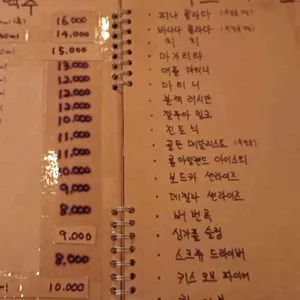 맥주
16.000
14.000
15.000
13.000
12.000
12.000
12.000
10.000
11.000
11.000
10.000
9.000
8.000
9.000
8.000
10.000
· 피나 콜라다
· 바나나 콜라다
· 치 치
· 마가리타
· 애플 마티니
· 마티니
· 블랙 러시안
· 깔루아 밀크
· 진토닉
· 골든 메달리스트
· 롱아일랜드 아이스티
· 보드카 썬라이즈
· 데킬라 썬라이즈
· 버번콕
· 싱가폴 슬링
· 스크류 드라이버
· 키스 오브 파이어